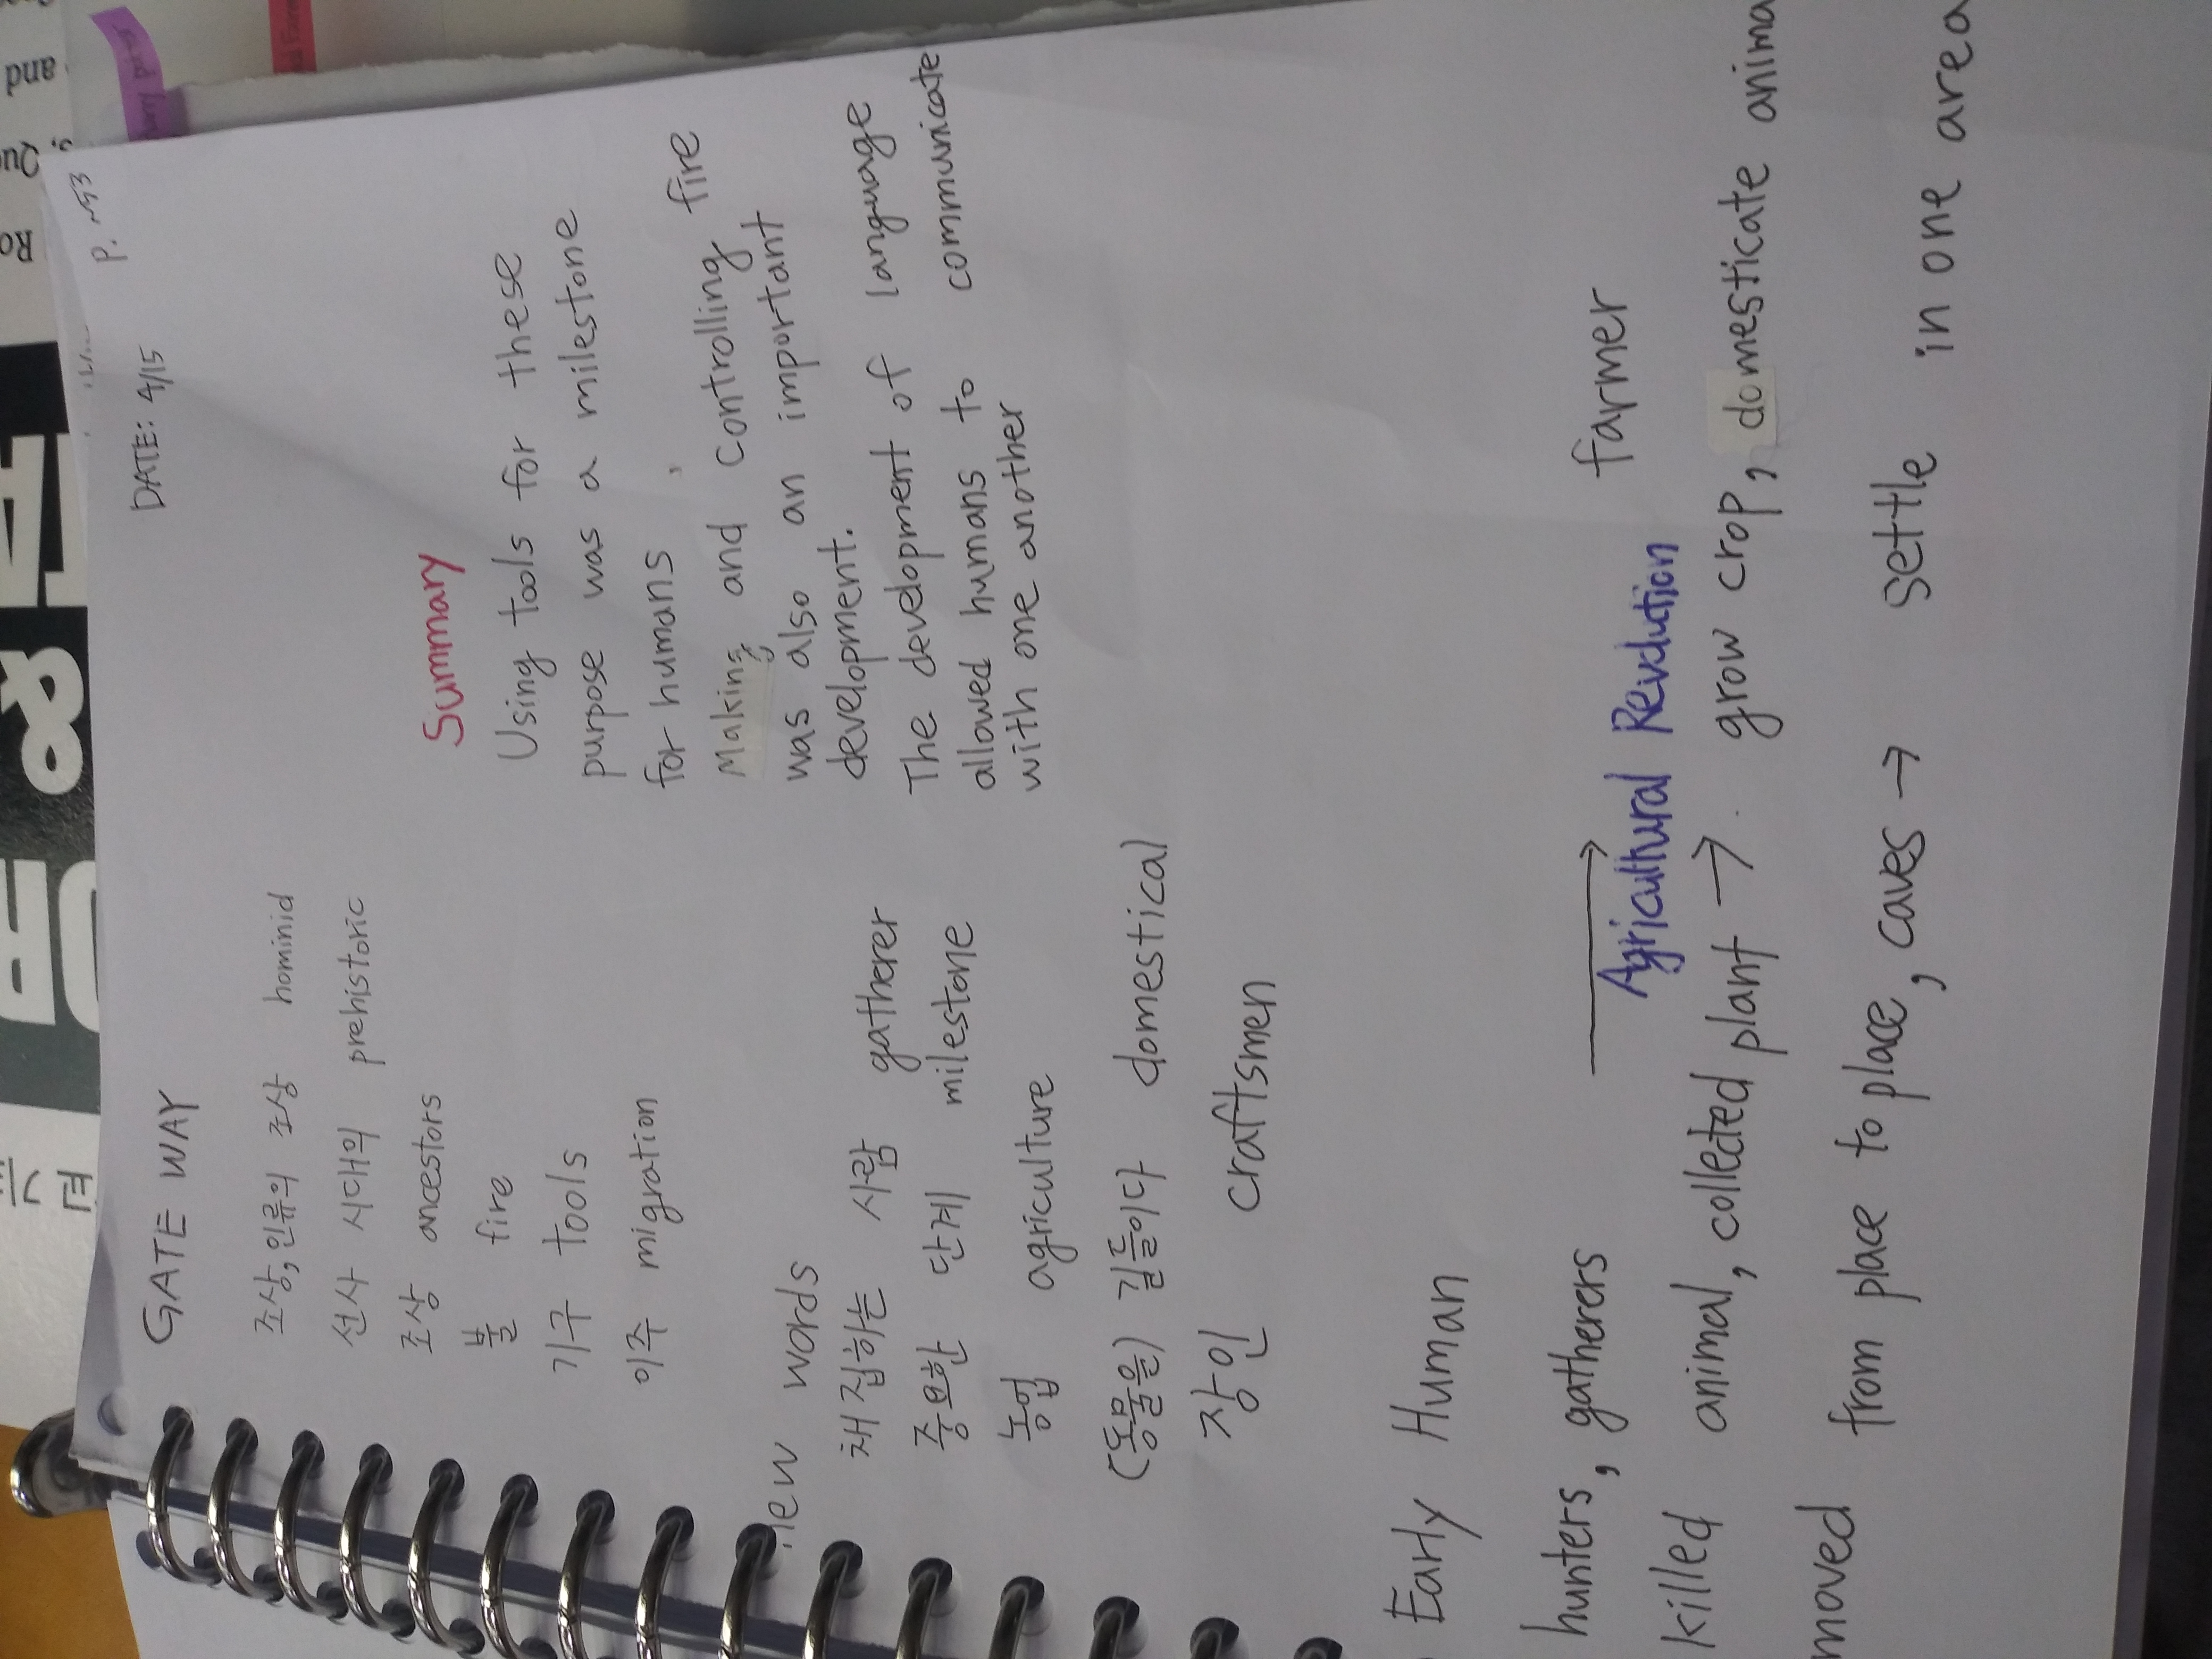 DATE: 4/15
GATE WAY
조상, 인류의 조상 hominid
선사 시대의 prehistoric
조상 ancestors
불 fire
기구 tools
이주 migration
new words
채집하는 사람 gatherer
중요한 단계 milestone
농업 agriculture
(동물을) 길들이다 domestical
장인 craftsmen
Summary
Using tools for these
purpose was a milestone
for humans,
Making and controlling fire
was also an important
development.
The development of language
allowed humans to communicate
with one another
Early Human
hunters, gatherers → farmer
Agricultural Revolution
killed animal, collected plant → grow crop, domesticate anima
moved from place to place, caves → settle in one area
and
Qu
Ro
&